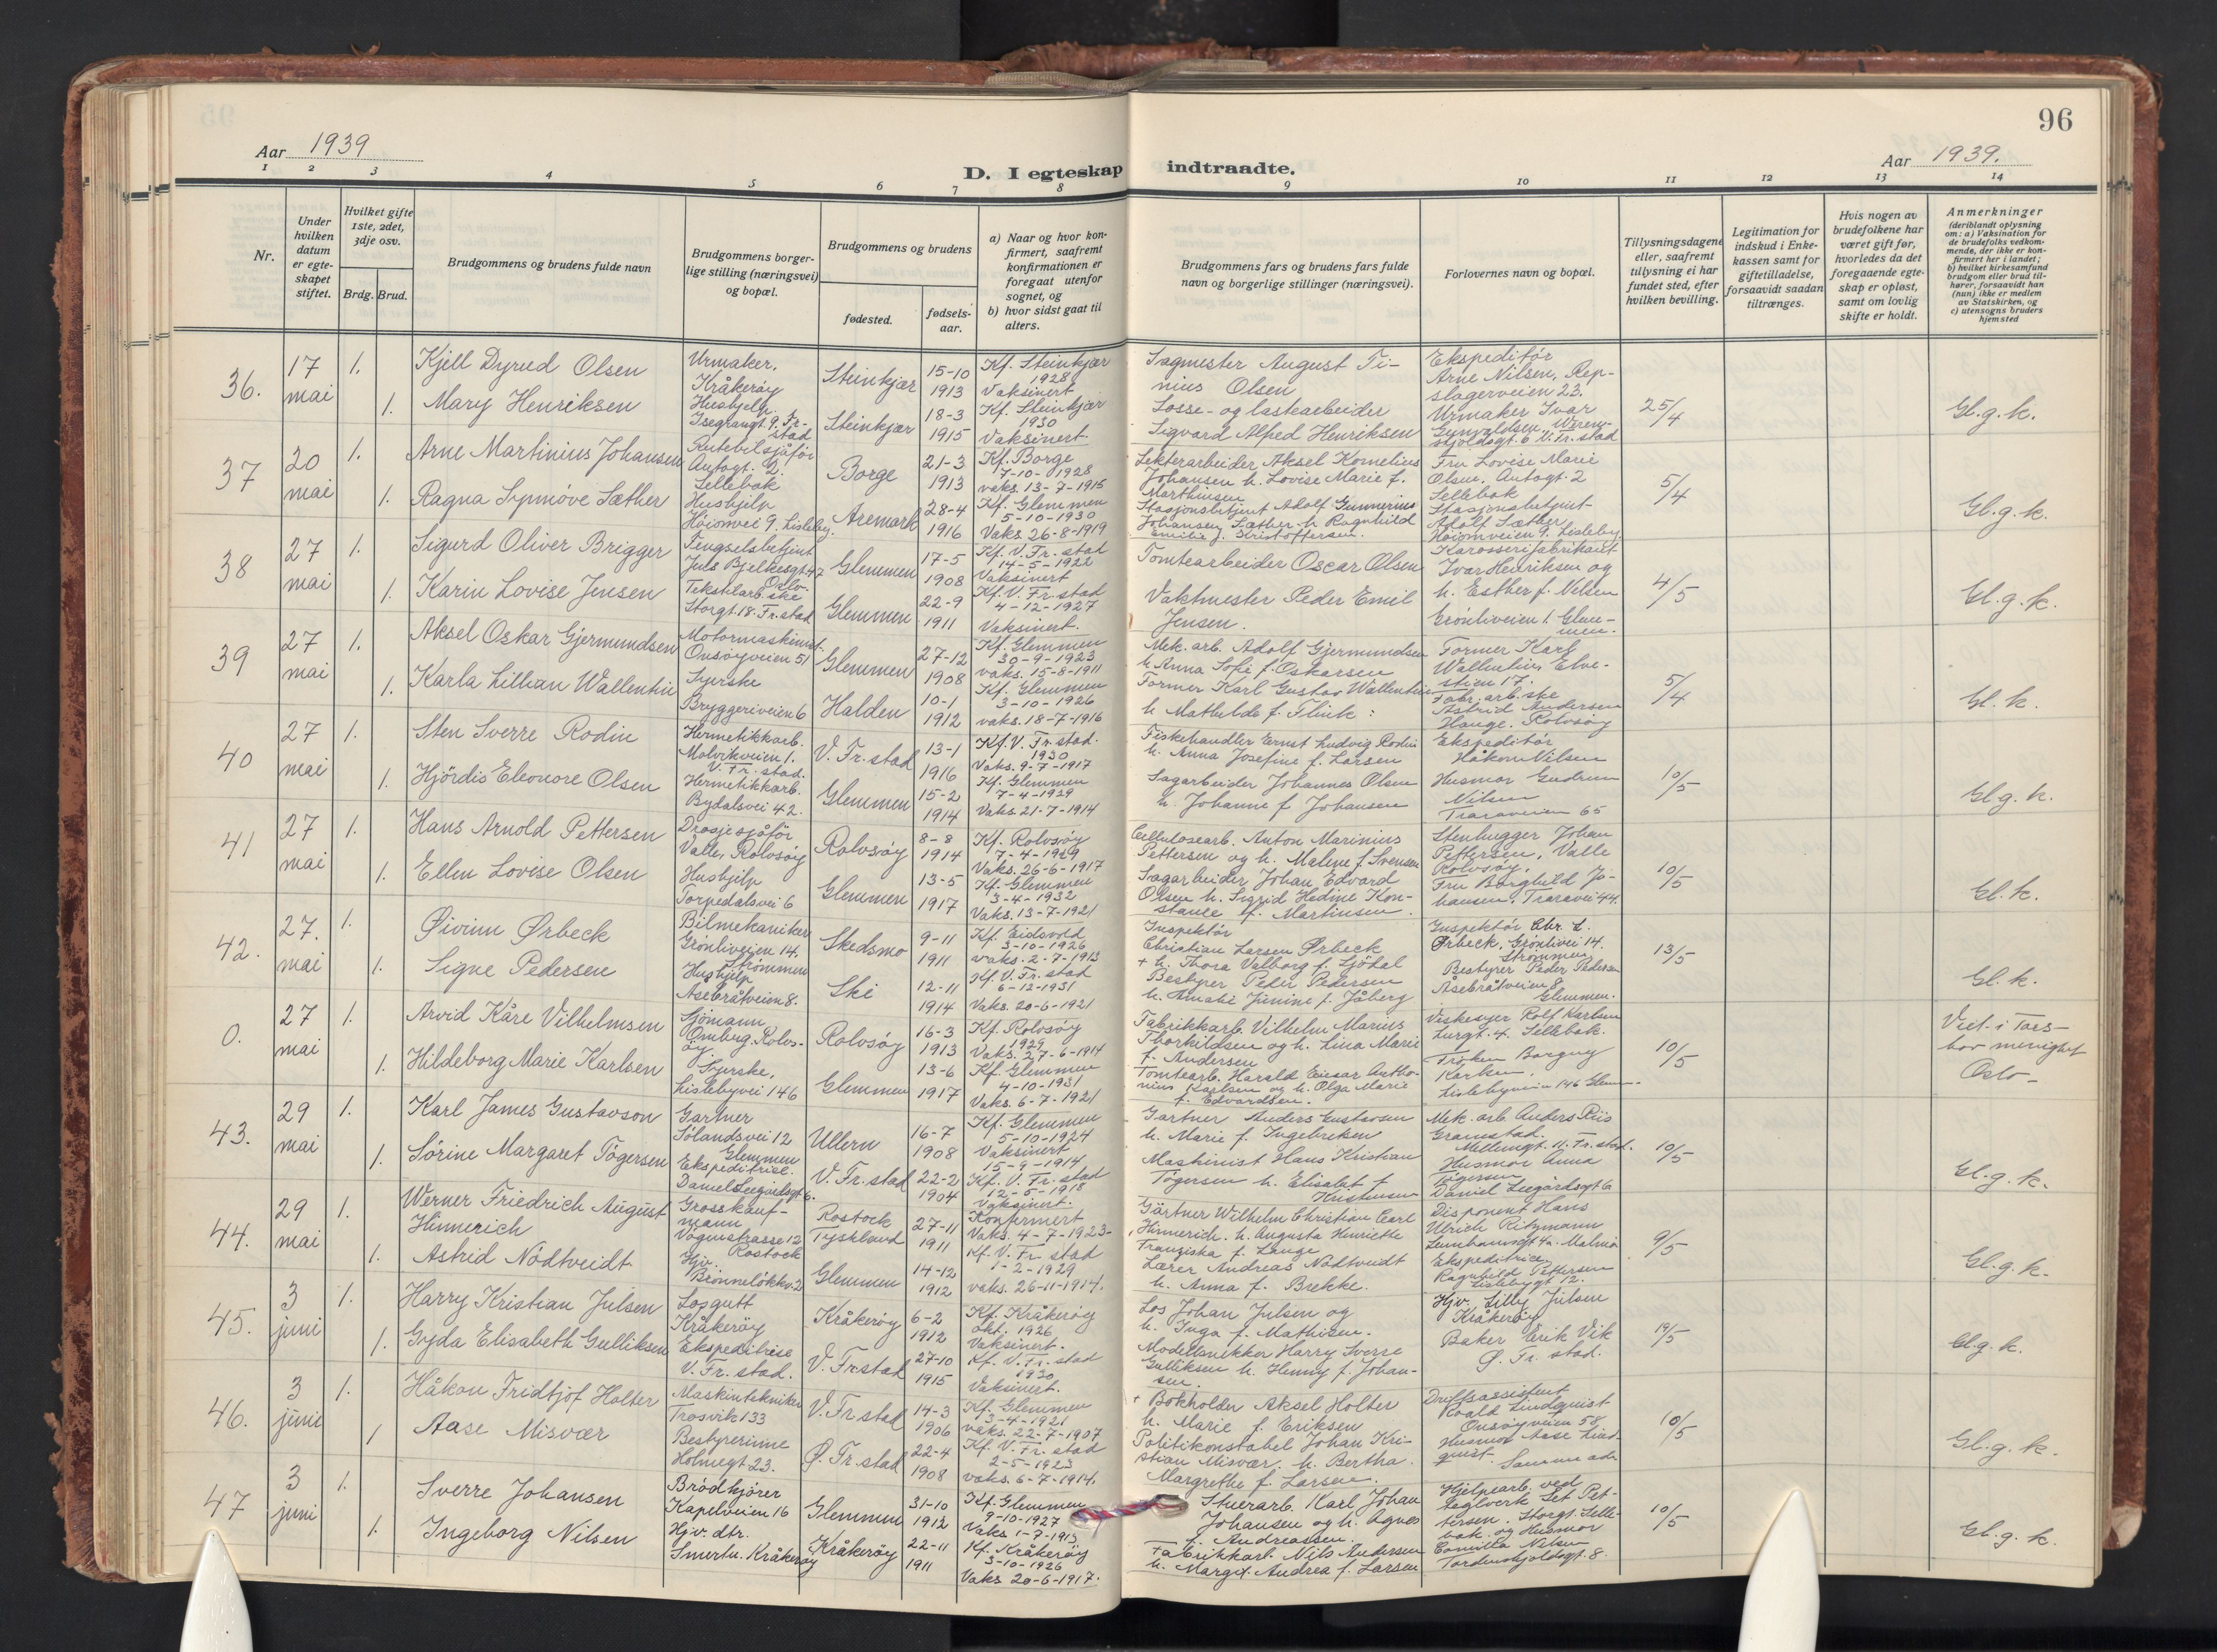 96
Aar 1939
Aar 1939.
D. Iegteskap indtraadte.
1 2 3 4 5 6 7 8 9 10 11 12 13 14
Nr.
Under hvilken datum er egte-skapet stiftet.
Hvilket gifte 1ste, 2det, 3dje osv.
Brdg. Brud.
Brudgommens og brudens fulde navn
Brudgommens borger-lige stilling (næringsvei) og bopæl.
Brudgommens og brudens
fødested.
fødsels-aar.
a) Naar og hvor kon-firmert, saafremt konfirmationen er foregaat utenfor sognet, og
b) hvor sidst gaat til alters.
Brudgommens fars og brudens fars fulde navn og borgerlige stillinger (næringsvei).
Forlovernes navn og bopæl.
Tillysningsdagene eller, saafremt tillysning ei har fundet sted, efter hvilken bevilling.
Legitimation for indskud i Enke-kassen samt for giftetilladelse, forsaavidt saadan tiltrænges.
Hvis nogen av brudefolkene har været gift før, hvorledes da det foregaaende egte-skap er opløst, samt om lovlig skifte er holdt.
Anmerkninger
(deriblandt oplysning om: a) Vaksination for de brudefolks vedkom-mende, der ikke er kon-firmert her i landet; b) hvilket kirkesamfund brudgom eller brud til-hører, forsaavidt han (hun) ikke er medlem av Statskirken, og c) utensogns bruders hjemsted
36. 17 mai 1. Kjell Dyrud Olsen
Urmaker, Kråkerøy
Steinkjær
15-10 1913
Kf. Steinkjær 1928 Vaksinert
Sagmester August Ti-nius Olsen
Ekspeditør Arne Nilsen, Rep-slagerveien 23.
25/4
Gl.g.k.
1. Mary Henriksen
Hushjelp Isegrangt. 9. Fr-stad
Steinkjær
18-3 1915
Kf. Steinkjær 1930 Vaksinert
Losse- og lastearbeider Sigvard Alfred Henriksen
Urmaker Ivar Gunvaldsen, Weren-skjoldsgt. 6 V. Fr. stad
37 20 mai 1. Arne Martinius Johansen
Rutebilsjåfør Autogt. 2. Sellebak
Borge
21-3 1913
Kf. Borge 7-10-1928 vaks. 13-7-1915
Lekterarbeider Aksel Kornelius Johansen h. Lovise Marie f. Marthinsen
Fru Lovise Marie Olsen, Autogt. 2 Sellebak
5/4
Gl.g.k.
1. Ragna Synnöve Sæther
Hushjelp Høiomvei 9. Lisleby.
Aremark
28-4 1916
Kf. Glemmen 5-10-1930 Vaks. 26-8-1919
Stasjonsbetjent Adolf Gunnerius Johansen Sæther h. Ragnhild Emilie f. Kristoffersen.
Stasjonsbetjent Adolf Sæther Høiomveien 9. Lisleby.
38 27 mai 1. Sigurd Oliver Brigger
Fengselsbetjent Juls Bjelkesgt 47 Oslo.
Glemmen
17-5 1908
Kf. V. Fr. stad 14-5-1922 Vaksinert
Tomtearbeider Oscar Olsen
Karosserifabrikant Ivar Henriksen og h. Esther f. Nilsen Grönliveien 1. Glem-men.
4/5
Gl.g.k.
1. Karin Lovise Jensen
Tekstilarb.ske Storgt. 18. Fr. stad
Glemmen
22-9 1911
Kf. V. Fr. stad 4-12-1927 Vaksinert.
Vaktmester Peder Emil Jensen.
39 27 mai 1. Aksel Oskar Gjermundsen
Motormaskinist. Onsøyveien 51
Glemmen
27-12 1908
Kf. Glemmen 30-9-1923 vaks. 15-8-1911
Mek. arb. Adolf Gjermundsen h Anna Sofie f. Oskarsen
Former Karl Wallentin, Elve-stien 17.
5/4
Gl. k.
1. Karla Lillian Wallentin
Syerske Bryggeriveien 6
Halden
10-1 1912
Kf. Glemmen 3-10-1926 vaks. 18-7-1916
Former Karl Gustav Wallentin h Mathilde f. Flink.
Fabr. arb. ske Astrid Andersen Hauge. Rolvsøy
40 27 mai 1. Sten Sverre Rodin
Hermetikkarb. Molvikveien 1. V. Fr. stad.
V. Fr. stad
13-1 1916
Kf. V. Fr. stad. 1930 Vaks. 9-7-1917
Fiskehandler Ernst Ludvig Rodin h. Anna Josefine f. Larsen
Ekspeditör Håkon Nilsen
10/5
Gl g. k.
1. Hjördis Eleonore Olsen
Hermetikkarb. Bydalsvei 42.
Glemmen
15-2 1914
Kf. Glemmen 7-4-1929 Vaks. 21-7-1914
Sagarbeider Johannes Olsen h. Johanne f Johansen
Husmor Gudrun Nilsen Traraveien 65
41 27 mai 1. Hans Arnold Pettersen
Drosjesjåför Valle, Rolvsöy
Rolvsöy
8-8 1914
Kf. Rolvsöy 7-4-1929 Vaks. 26-6-1917
Cellulosearb. Anton Marinius Pettersen og h. Malene f. Svensen
Stenhugger Johan Pettersen, Valle Rolvsöy.
10/5
Gl. k.
1. Ellen Lovise Olsen
Hushjelp Torpedalsvei 6
Glemmen
13-5 1917
Kf. Glemmen 3-4-1932 Vaks. 13-7-1921
Sagarbeider Johan Edvard Olsen h. Sigrid Hedine Kon-stance f. Martinsen.
Fru Borghild Jo-hansen, Traravei 44.
42. 27. mai 1. Øivinn Ørbeck
Bilmekaniker Grönliveien 14. Strömmen
Skedsmo
9-11 1911
Kf. Eidsvold 3-10-1926 vaks. 2-7-1913
Inspektör Christian Larsen Ørbeck + h. Thora Valborg f. Sjödal
Inspektör Chr. L. Ørbeck, Grönlivei 14. Strömmen
13/5
Gl. k.
1. Signe Pedersen
Hushjelp Åsebråtveien 8.
Ski
12-11 1914
Kf V. Fr. stad 6-12-1931 Vaks. 20-6-1921
Bestyrer Peder Pedersen h. Jenine f. Jåberg
Bestyrer Peder Pedersen Åsebråtveien 8 Glemmen.
0. 27 mai 1. Arvid Kåre Vilhelmsen
Sjömann Omberg. Rolvs-öy.
Rolvsöy
16-3 1913
Kf. Rolvsöy 1929 Vaks. 27-6-1914
Fabrikkarb. Vilhelm Marius Thorkildsen og h. Lina Marie f. Andersen
Viskesyer Rolf Karlsen Lurgt. 4. Sellebak.
10/5
Viet i Tors-hov menighet Oslo-
1. Hildeborg Marie Karlsen
Syerske, Lislebyvei 146
Glemmen
13-6 1917
Kf. Glemmen 4-10-1931 Vaks. 6-7-1921
Tomtearb. Harald Einar Antho-nius Karlsen og h. Olga Marie f. Edvardsen.
Fröken Borgny Karlsen, Lislebyveien 146 Glem-
43. 29 mai 1. Karl James Gustavson
Gartner Sölandsvei 12 Glemmen
Ullern
16-7 1908
Kf. Glemmen 5-10-1924 Vaksinert 15-9-1914
Gartner Anders Gustavsen h. Marie f. Ingebretsen
Mek. arb Anders Riis Granestad. Mellemgt. 11. Fr. stad.
10/5
Gl. g. k.
1. Sörine Margaret Tögersen
Ekspeditrise. Daniel Leegårdsgt 6.
V. Fr. stad
22-2 1904
Kf. V. Fr. stad 12-5-1918 Vaksinert.
Maskinist Hans Kristian Tögersen h. Elisabet f Kristensen
Husmor Anna Tögersen Daniel Leegårdsgt 6
44. 29 mai 1. Werner Friedrich August Hinnerich
Grosskauf-mann Rostock
Rostock Tyskland
27-11 1911
Konfirmert Vaks. 4-7-1923-
Gärtner Wilhelm Christian Carl Hinnerich. h. Augusta Henriette Franziska f. Lange
Disponent Hans Ulrich Ritzmann Malmö
9/5
Gl. g. k.
1. Astrid Nödtveidt
Hjv. Brönnelökkv. 2
Glemmen
14-12 1912
Kf. V. Fr. stad 1-2-1929 vaks. 26-11-1914.
Lærer Andreas Nödtveidt h. Anna f. Brekke.
Ekspeditrice Ragnhild Pettersen Lislebygt 12.
45. 3 juni 1. Harry Kristian Julsen
Losgutt Kråkeröy
Kråkeröy
6-2 1912
Kf. Kråkeröy okt. 1926 Vaksinert.
Los Johan Julsen og h. Inga f. Mathisen.
Hjv. Lilly Julsen Kråkeröy
19/5
Gl.g. k.
1. Gyda Elisabeth Gulliksen
Ekspeditrise V. Fr. stad.
V. Fr. stad
27-10 1915
Kf. V. Fr. stad 1930 Vaksinert.
Modellsnekker Harry Sverre Gulliksen h. Henny f. Johan-sen.
Baker Erik Vik Ø. Fr. stad.
46. 3 juni 1. Håkon Fridtjof Holter
Maskintekniker Trosvik 133
V. Fr. stad
14-3 1906
Kf. Glemmen 3-4-1921 vaks. 22-7-1907
+ Bokholder Aksel Holter h. Marie f. Eriksen
Driftsassistent Roald Lindquist Onsöyveien 58
10/5
Gl. g. k.
1 Aase Misvær
Bestyrerinne Holmegt 23.
Ø. Fr. stad
22-4 1908
Kf. V. Fr. stad 2-5-1923 vaks. 6-7-1914.
Politikonstabel Johan Kri-stian Misvær. h. Bertha Margrethe f. Larsen.
Husmor Aase Lind-quist. Samme adr.
47 3 juni 1. Sverre Johansen
Brödkjörer Kapelveien 16
Glemmen
31-10 1912
Kf. Glemmen 9-10-1927 Vaks 1-7-1913
Stuerarb. Karl Johan Johansen og h. Agnes f. Andreassen
Hjelpearb. ved teglverk Pet-tersen. Storgt. Selle-bak. og Husmor
10/5
Gl. g. k.
1. Ingeborg Nilsen
Hjv. dtr. Smertu. Kråkeröy
Kråkeröy
22-11 1911
Kf. Kråkeröy 3-10-1926 Vaks 20-6-1917.
+ Fabrikkarb. Nils Andersen h. Margit Andrea f. Larsen
Camilla Nilsen Tordenskjoldsgt. 8.